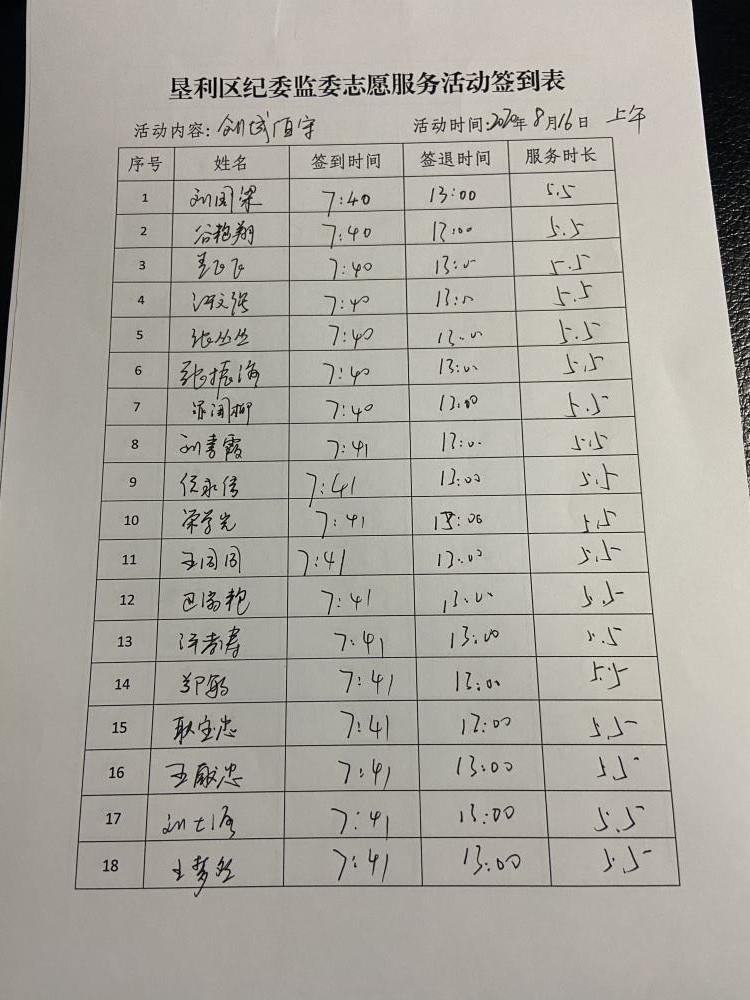 垦利区纪委监委志愿服务活动签到表
活动内容：创城值守 活动时间：2020年8月16日 上午
序号 姓名 签到时间 签退时间 服务时长
1 刘国梁 7:40 13:00 5.5
2 谷艳翔 7:40 13:00 5.5
3 7:40 13:00 5.5
4 江文强 7:40 13:00 5.5
5 张丛丛 7:40 13:00 5.5
6 张振海 7:40 13:00 5.5
7 7:40 13:00 5.5
8 刘青霞 7:41 13:00 5.5
9 任永信 7:41 13:00 5.5
10 荣学光 7:41 13:00 5.5
11 王同同 7:41 13:00 5.5
12 巴海艳 7:41 13:00 5.5
13 7:41 13:00 5.5
14 郑敏 7:41 13:00 5.5
15 耿宝忠 7:41 13:00 5.5
16 王殿忠 7:41 13:00 5.5
17 刘七海 7:41 13:00 5.5
18 王梦 7:41 13:00 5.5